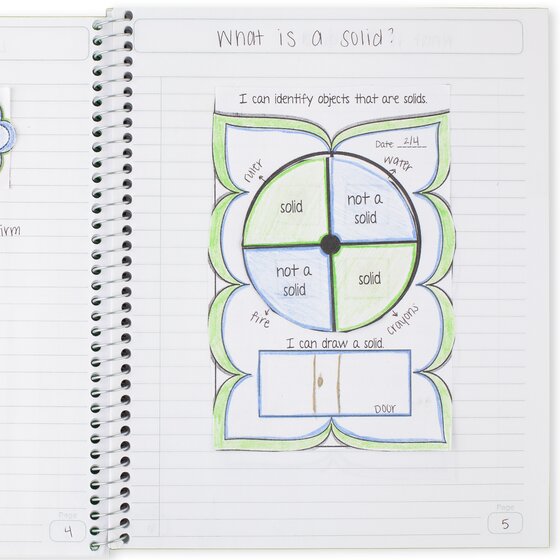 What is a solid?
I can identify objects that are solids.
Date 2/4
ruler
water
solid
not a
solid
not a
solid
solid
fire
crayons
I can draw a solid.
Door
irm
Page
4
Page
5